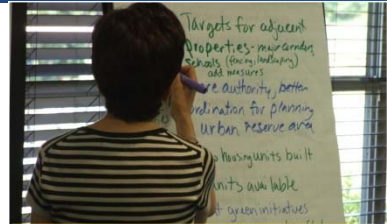 Targets for adjacent
properties - major corridors,
schools (fencing, landscaping)
add measures
authority, better
coordination for planning
urban reserve area
housing units built
units available
green initiatives